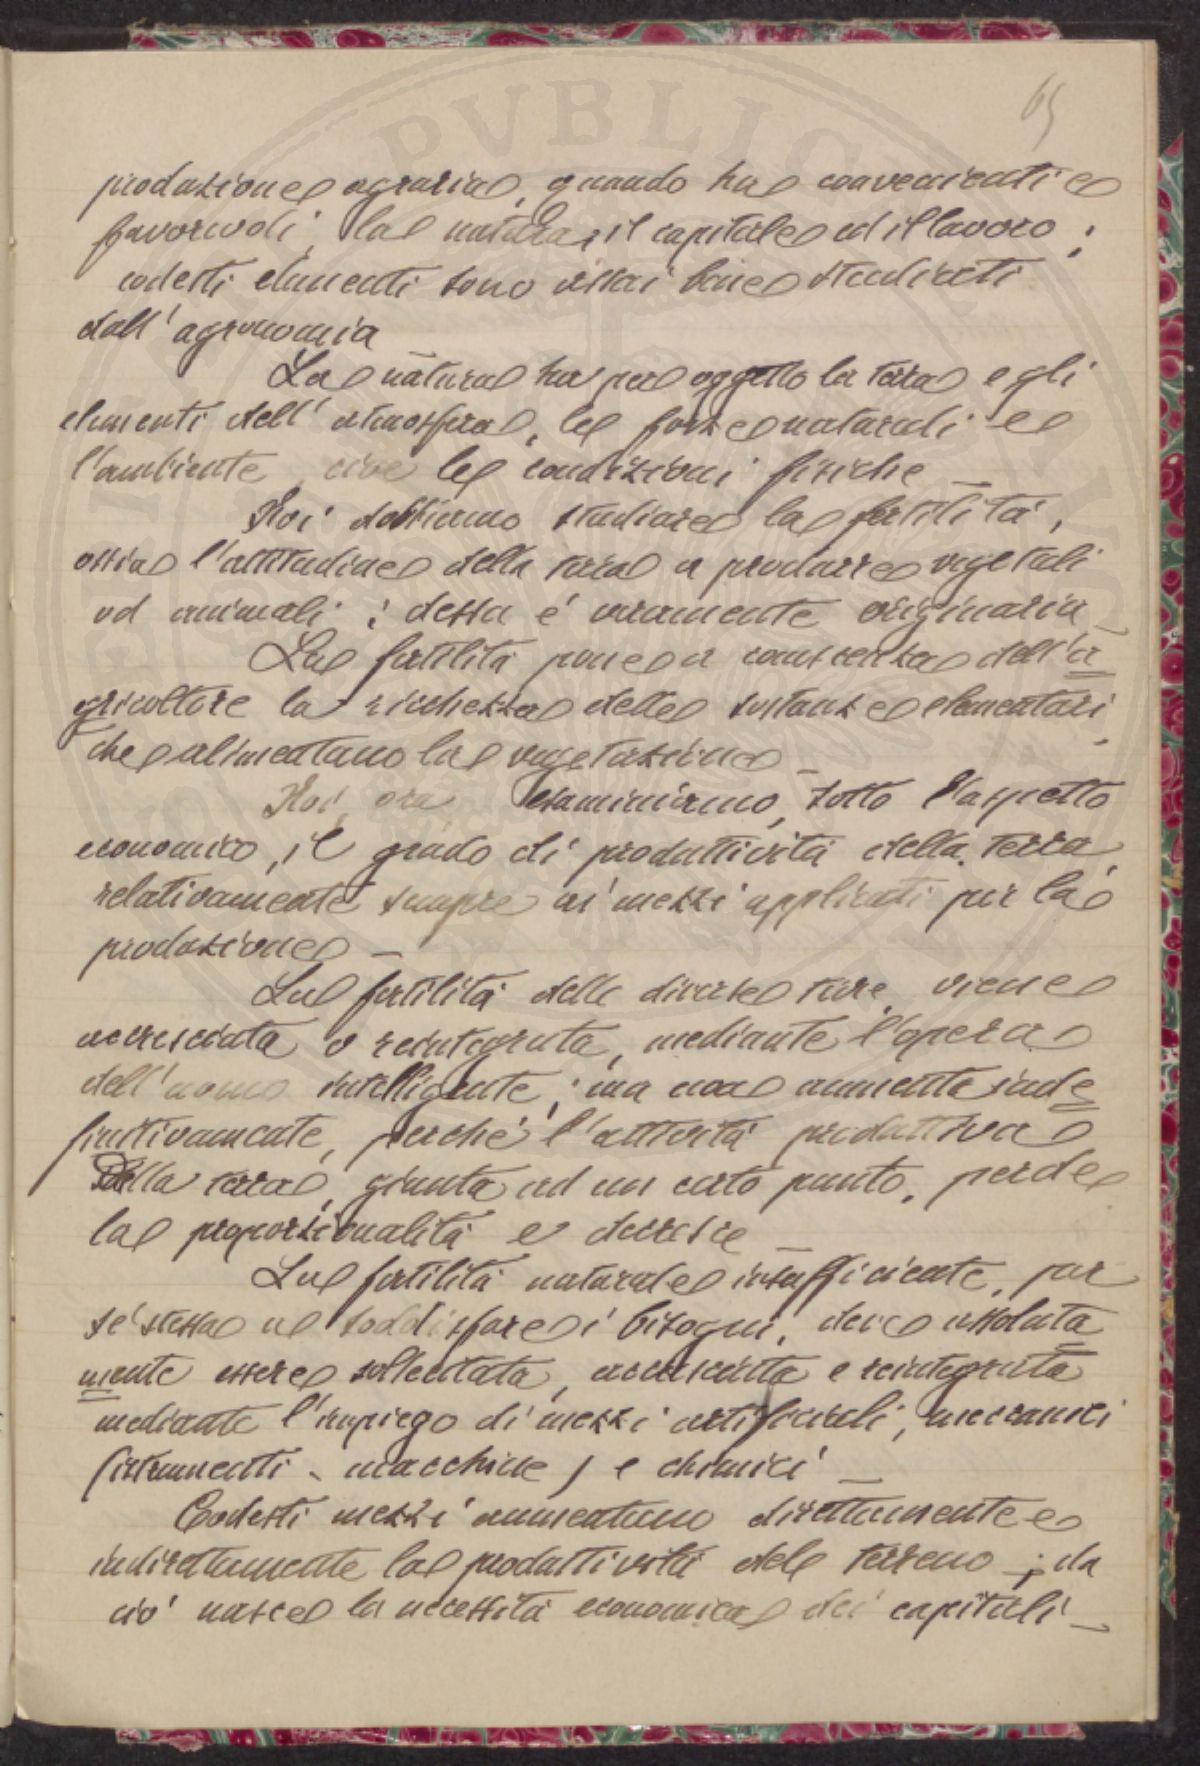 65
produzione agraria, quando ha convenienti e
favorevoli, la natura, il capitale ed il lavoro;
codesti elementi sono assai bene studiati
dall'agronomia
La natura ha per oggetto la terra e gli
elementi dell'atmosfera, le forze naturali e
l'ambiente cioè le condizioni fisiche –
Noi dobbiamo studiare la fertilità,
ossia l'attitudine della terra a produrre vegetali
od animali; dessa è veramente originaria –
La fertilità pone a conoscenza dell'a
gricoltore la ricchezza delle sostanze elementari,
che alimentano la vegetazione –
Noi, ora, esaminiamo, sotto l'aspetto
economico, il grado di produttività della terra,
relativamente sempre ai mezzi applicati per la
produzione –
La fertilità delle diverse terre, viene
accresciuta o reintegrata, mediante l'opera
dell'uomo intelligente; ma non aumenta inde
finitivamente, perchè l'attività produttiva
della terra, giunta ad un certo punto, perde
la proporzionalità e decresce –
La fertilità naturale insufficiente, per
sè stessa a soddisfare i bisogni, deve assoluta
mente essere sollecitata, accresciuta e reintegrata
mediante l'impiego di mezzi artificiali, meccanici
(istrumenti – macchine) e chimici –
Codesti mezzi aumentano direttamente e
indirettamente la produttività del terreno –; da
ciò nasce la necessità economica dei capitali –
PVBLIC